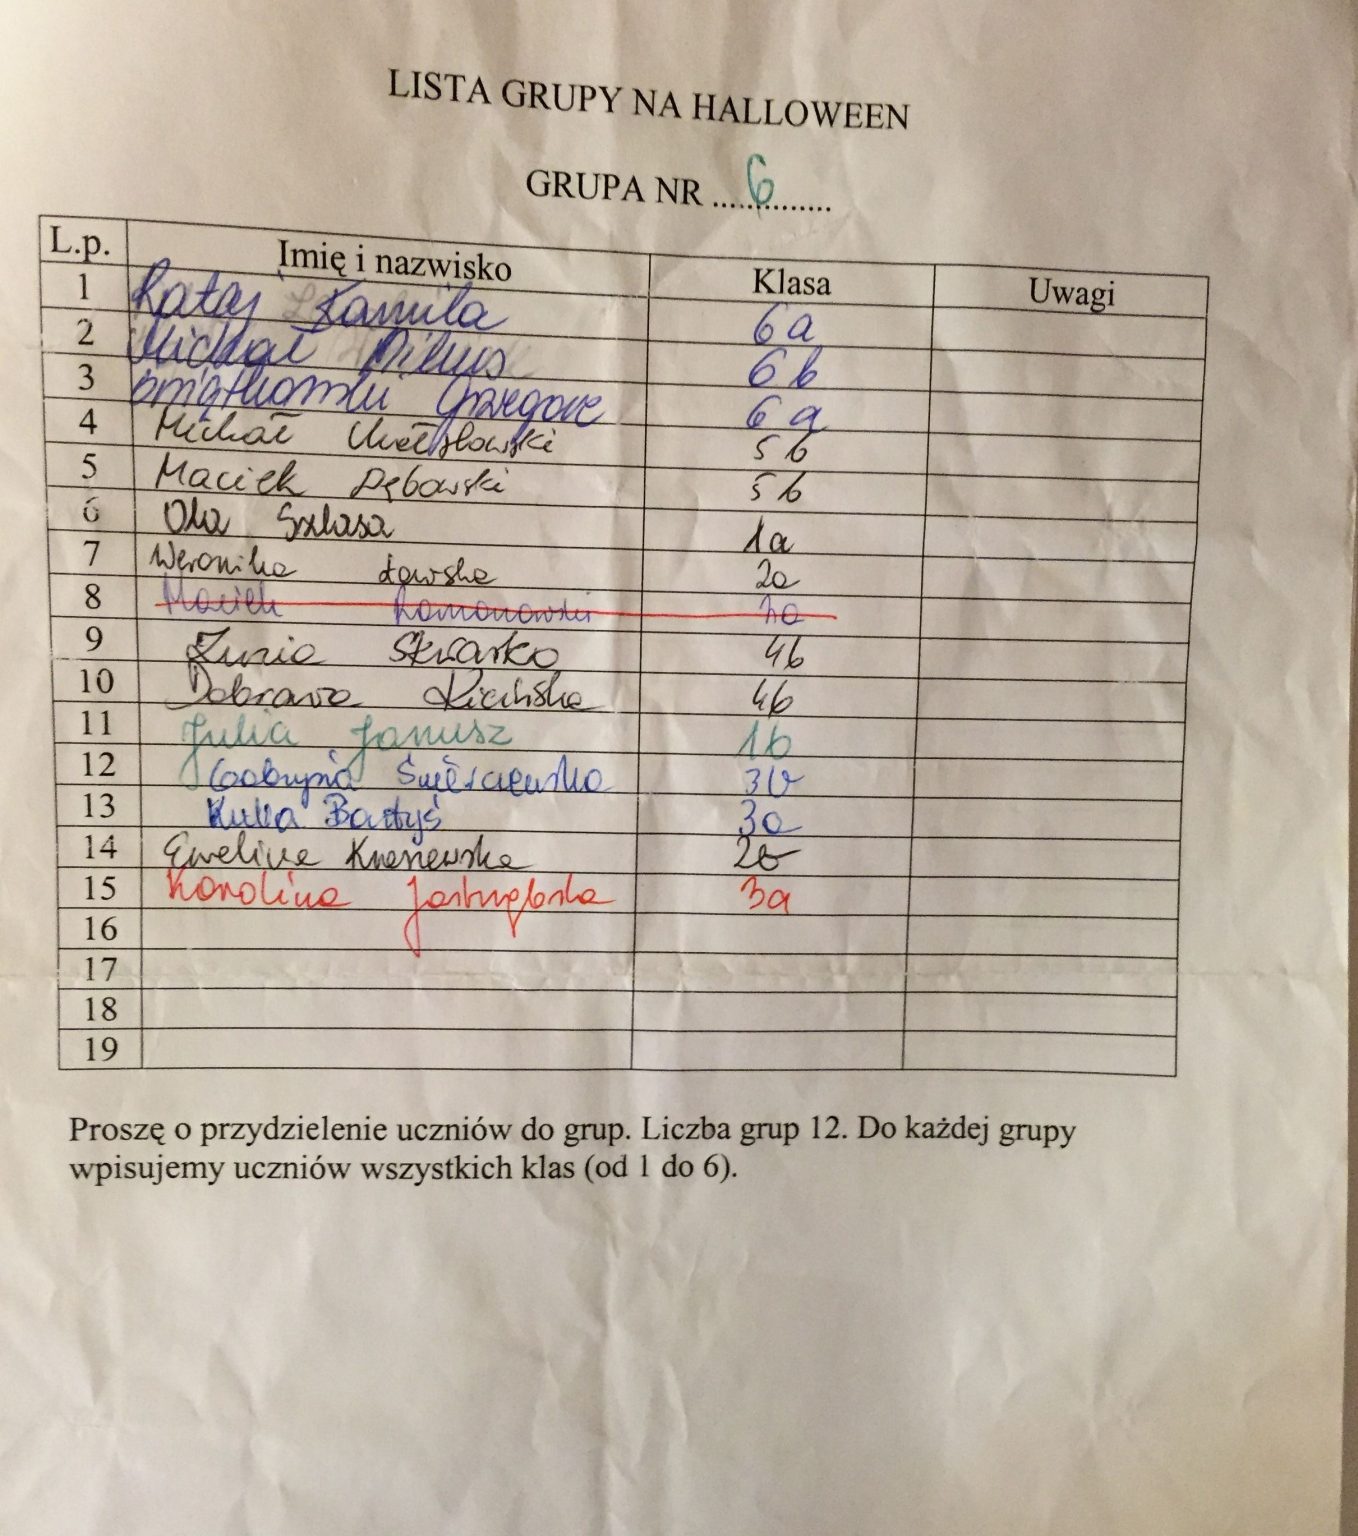 LISTA GRUPY NA HALLOWEEN
GRUPA NR ....6........
L.p. Imię i nazwisko Klasa Uwagi
1 Rataj Kamila 6a
2 Michał Pilus 6b
3 Grzegorz 6a
4 Michał 5b
5 Maciek Dębowski 5b
6 Ola Szlasa 1a
7 Weronika Ławska 2a
8 Maciek Romanowski
9 Zuzia Skwarko 4b
10 Dobrawa Kicińska 4b
11 Julia Janusz 1b
12 Gabrysia 3b
13 Kuba Bartyś 3a
14 Ewelina 2b
15 Karolina Jastrzębska 3a
16
17
18
19
Proszę o przydzielenie uczniów do grup. Liczba grup 12. Do każdej grupy
wpisujemy uczniów wszystkich klas (od 1 do 6).